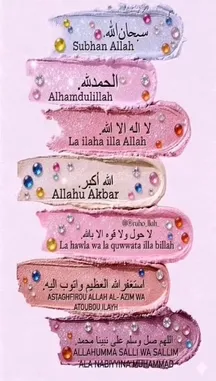 سبحان الله.
Subhan Allah
الحمدلله.
Alhamdulillah
لا اله الا الله.
La ilaha illa Allah
الله أكبر
Allahu Akbar
لا حول ولا قوه الا بالله.
La hawla wa la quwwata illa billah
استغفر الله العظيم واتوب اليه.
ASTAGHFIROU ALLAH AL- AZIM WA
ATOUBOU ILAYH
اللهم صل وسلم علي نبينا محمد.
ALLAHUMMA SALLI WA SALLIM
ALA NABIYYINA MUHAMMAD